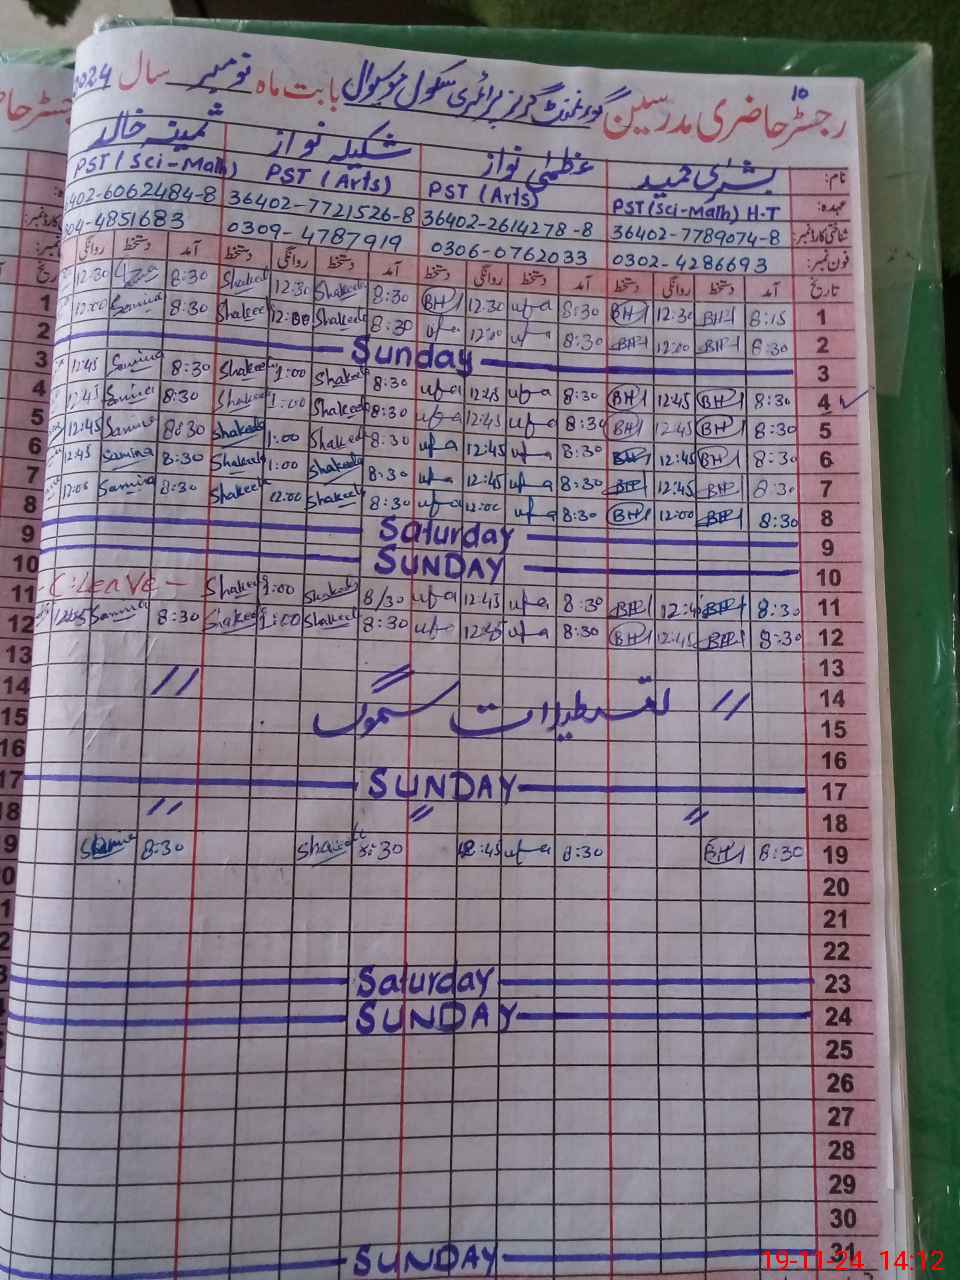 10
رجسٹر حاضری مدرسین گورنمنٹ گرلز پرائمری سکول بابت ماہ نومبر سال 2024
نام: بشریٰ حمید عظمیٰ نواز شکیلہ نواز ثمینہ خالد
عہدہ: PST(Sci-Math) H-T PST (Arts) PST (Arts) PST (Sci-Math)
شناختی کارڈ نمبر: 36402-7789074-8 36402-2614278-8 36402-7721526-8 6402-6062484-8
فون نمبر: 0302-4286693 0306-0762033 0309-4787919 04-4851683
تاریخ آمد دستخط روانگی دستخط آمد دستخط روانگی دستخط آمد دستخط روانگی دستخط آمد دستخط روانگی
1 8:15 BH 12:30 BH 8:30 ufa 12:30 BH 8:30 Shakeela 12:30 Shakeela 8:30 12:30
2 8:30 BH 12:00 BH 8:30 uf 12:00 ufa 8:30 Shakeela 12:00 Shakeela 8:30 Samina 12:00
3 Sunday
4 8:30 BH 12:45 BH 8:30 ufa 12:45 ufa 8:30 Shakeela 1:00 Shakeela 8:30 Samina 12:45
5 8:30 BH 12:45 BH 8:30 ufa 12:45 ufa 8:30 Shakeela 1:00 Shakeela 8:30 Samina 12:45
6 8:30 BH 12:45 BH 8:30 ufa 12:45 ufa 8:30 Shakeela 1:00 Shakeela 8:30 Samina 12:45
7 8:30 BH 12:45 BH 8:30 ufa 12:45 ufa 8:30 Shakeela 1:00 Shakeela 8:30 Samina 12:45
8 8:30 BH 12:00 BH 8:30 ufa 12:00 ufa 8:30 Shakeela 12:00 Shakeela 8:30 Samina 12:00
9 Saturday
10 SUNDAY
11 8:30 BH 12:45 BH 8:30 ufa 12:45 ufa 8/30 Shakeela 1:00 Shakeela C:LeAVe
12 8:30 BH 12:45 BH 8:30 ufa 12:45 ufa 8:30 Shakeela 1:00 Shakeela 8:30 Samina 12:45
13
14 // // //
15 تعطیلات سموگ
16
17 SUNDAY
18 // // //
19 8:30 BH 8:30 ufa 12:45 8:30 Shakeela 8:30 Samina
20
21
22
23 Saturday
24 SUNDAY
25
26
27
28
29
30
31 SUNDAY
19-11-24 14:12